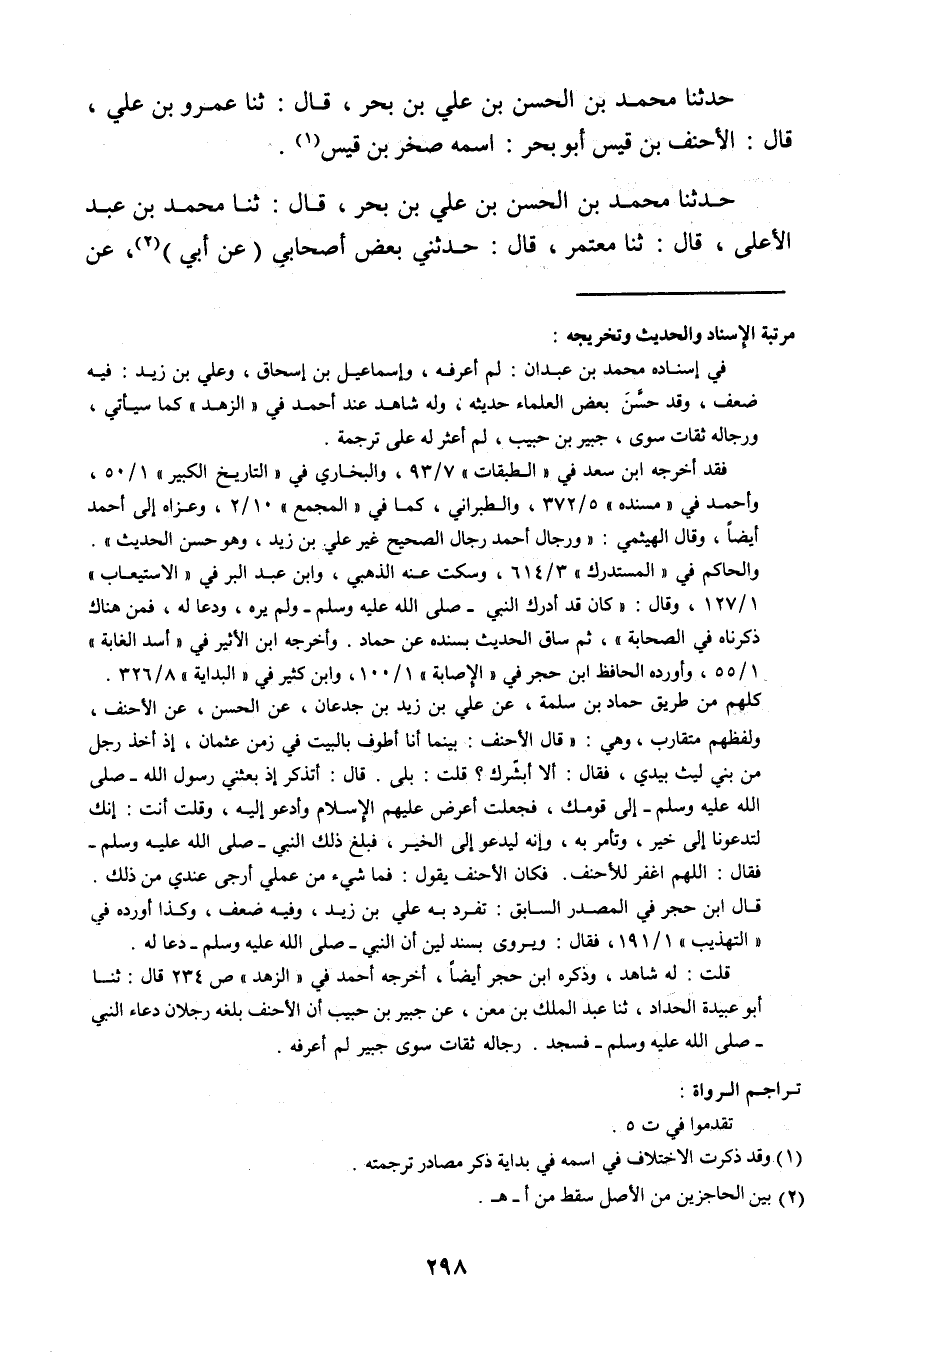 حدثنا محمد بن الحسن بن علي بن بحر ، قال : ثنا عمرو بن علي ،
قال : الأحنف بن قيس أبو بحر : اسمه صخر بن قيس(١) .
حدثنا محمد بن الحسن بن علي بن بحر ، قال : ثنا محمد بن عبد
الأعلى ، قال : ثنا معتمر ، قال : حدثني بعض أصحابي ( عن أبي )(٢)، عن
مرتبة الإسناد والحديث وتخريجه :
في إسناده محمد بن عبدان : لم أعرفه ، وإسماعيل بن إسحاق ، وعلي بن زيد : فيه
ضعف ، وقد حسَّنَ بعض العلماء حديثه ، وله شاهد عند أحمد في « الزهد » كما سيأتي ،
ورجاله ثقات سوى ، جبير بن حبيب ، لم أعثر له على ترجمة .
فقد أخرجه ابن سعد في « الطبقات » ٩٣/٧ ، والبخاري في « التاريخ الكبير » ٥٠/١ ،
وأحمد في « مسنده » ٣٧٢/٥ ، والطبراني ، كما في « المجمع » ٢/١٠ ، وعزاه إلى أحمد
أيضاً ، وقال الهيثمي : « ورجال أحمد رجال الصحيح غير علي بن زيد ، وهو حسن الحديث » .
والحاكم في « المستدرك » ٦١٤/٣ ، وسكت عنه الذهبي ، وابن عبد البر في « الاستيعاب »
١٢٧/١ ، وقال : « كان قد أدرك النبي - صلى الله عليه وسلم - ولم يره ، ودعا له ، فمن هناك
ذكرناه في الصحابة » ، ثم ساق الحديث بسنده عن حماد . وأخرجه ابن الأثير في « أسد الغابة »
٥٥/١ ، وأورده الحافظ ابن حجر في « الإصابة » ١٠٠/١ ، وابن كثير في « البداية » ٣٢٦/٨ .
كلهم من طريق حماد بن سلمة ، عن علي بن زيد بن جدعان ، عن الحسن ، عن الأحنف ،
ولفظهم متقارب ، وهي : « قال الأحنف : بينما أنا أطوف بالبيت في زمن عثمان ، إذ أخذ رجل
من بني ليث بيدي ، فقال : ألا أبشّرك ؟ قلت : بلى . قال : أتذكر إذ بعثني رسول الله - صلى
الله عليه وسلم - إلى قومك ، فجعلت أعرض عليهم الإسلام وأدعو إليه ، وقلت أنت : إنك
لتدعونا إلى خير ، وتأمر به ، وإنه ليدعو إلى الخير ، فبلغ ذلك النبي - صلى الله عليه وسلم -
فقال : اللهم اغفر للأحنف. فكان الأحنف يقول : فما شيء من عملي أرجى عندي من ذلك .
قال ابن حجر في المصدر السابق : تفرد به علي بن زيد ، وفيه ضعف ، وكذا أورده في
« التهذيب » ١٩١/١ ، فقال : ويروى بسند لين أن النبي - صلى الله عليه وسلم - دعا له .
قلت : له شاهد ، وذكره ابن حجر أيضاً ، أخرجه أحمد في « الزهد » ص ٢٣٤ قال : ثنا
أبو عبيدة الحداد ، ثنا عبد الملك بن معن ، عن جبير بن حبيب أن الأحنف بلغه رجلان دعاء النبي
- صلى الله عليه وسلم - فسجد . رجاله ثقات سوى جبير لم أعرفه .
تراجم الرواة :
تقدموا في ت ٥ .
(١) وقد ذكرت الاختلاف في اسمه في بداية ذكر مصادر ترجمته .
(٢) بين الحاجزين من الأصل سقط من أ - هـ .
٢٩٨